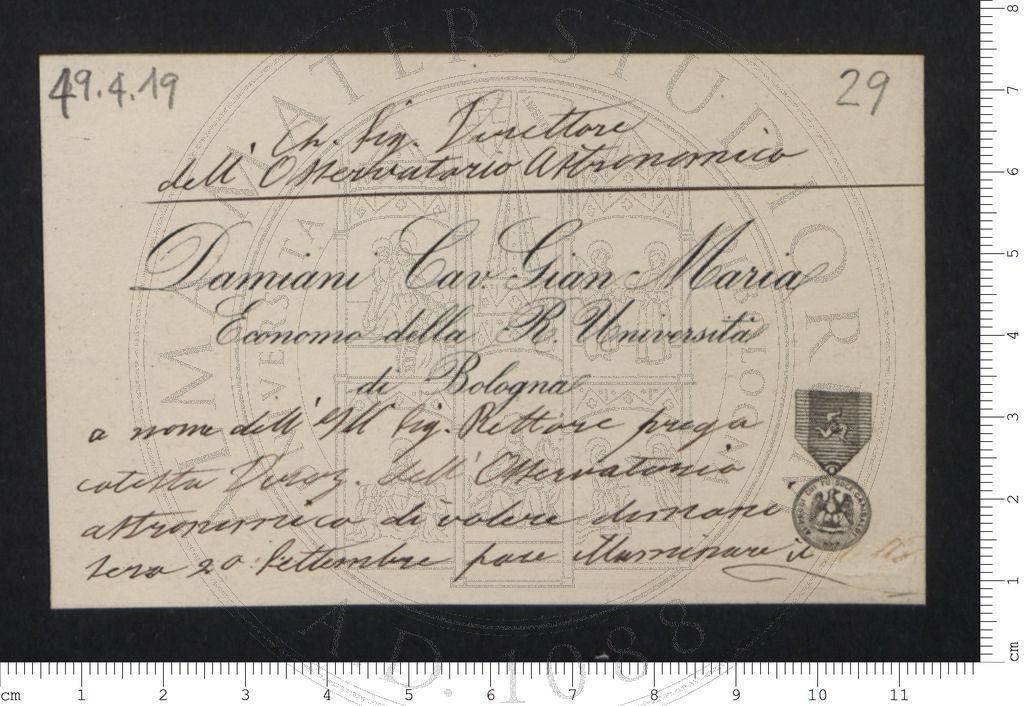 49.4.19
29
Ch. Sig. Direttore
dell' Osservatorio Astronomico
Damiani Cav. Gian Maria
Economo della R. Università
di Bologna
a nome dell' Ill Sig. Rettore prega
cotesta Direz. dell' Osservatorio
astronomico di volere dimane
sera 20 Settembre fare illuminare il
ALMA MATER STUDIORUM
A.D. 1088
cm 1 2 3 4 5 6 7 8 9 10 11
cm 1 2 3 4 5 6 7 8